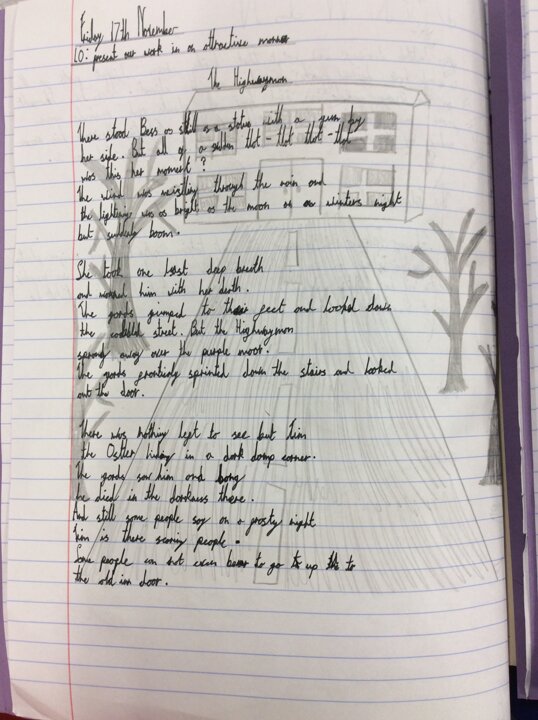 Friday 17th November
LO: present our work in an attractive manner
The Highwayman
There stood Bess as still as a statue with a gun by
her side. But all of a sudden tlot - tlot tlot - tlot
was this her moment?
The wind was whistling through the rain and
the lightning was as bright as the moon on a winters night
but suddenly boom.
She took one last deep breath
and warned him with her death.
The gards jumped to their feet and looked down
the street. But the Highwayman
sprang away over the purple moor.
The gards sprinted down the stairs and looked
out the door.
There was nothing left to see but Tim
the Ostler hiding in a dark damp corner.
The gards saw him and bang
he died in the there.
And still some people say on a frosty night
him is there scaring people.
Some people can not even bear to go up to
the old inn door.